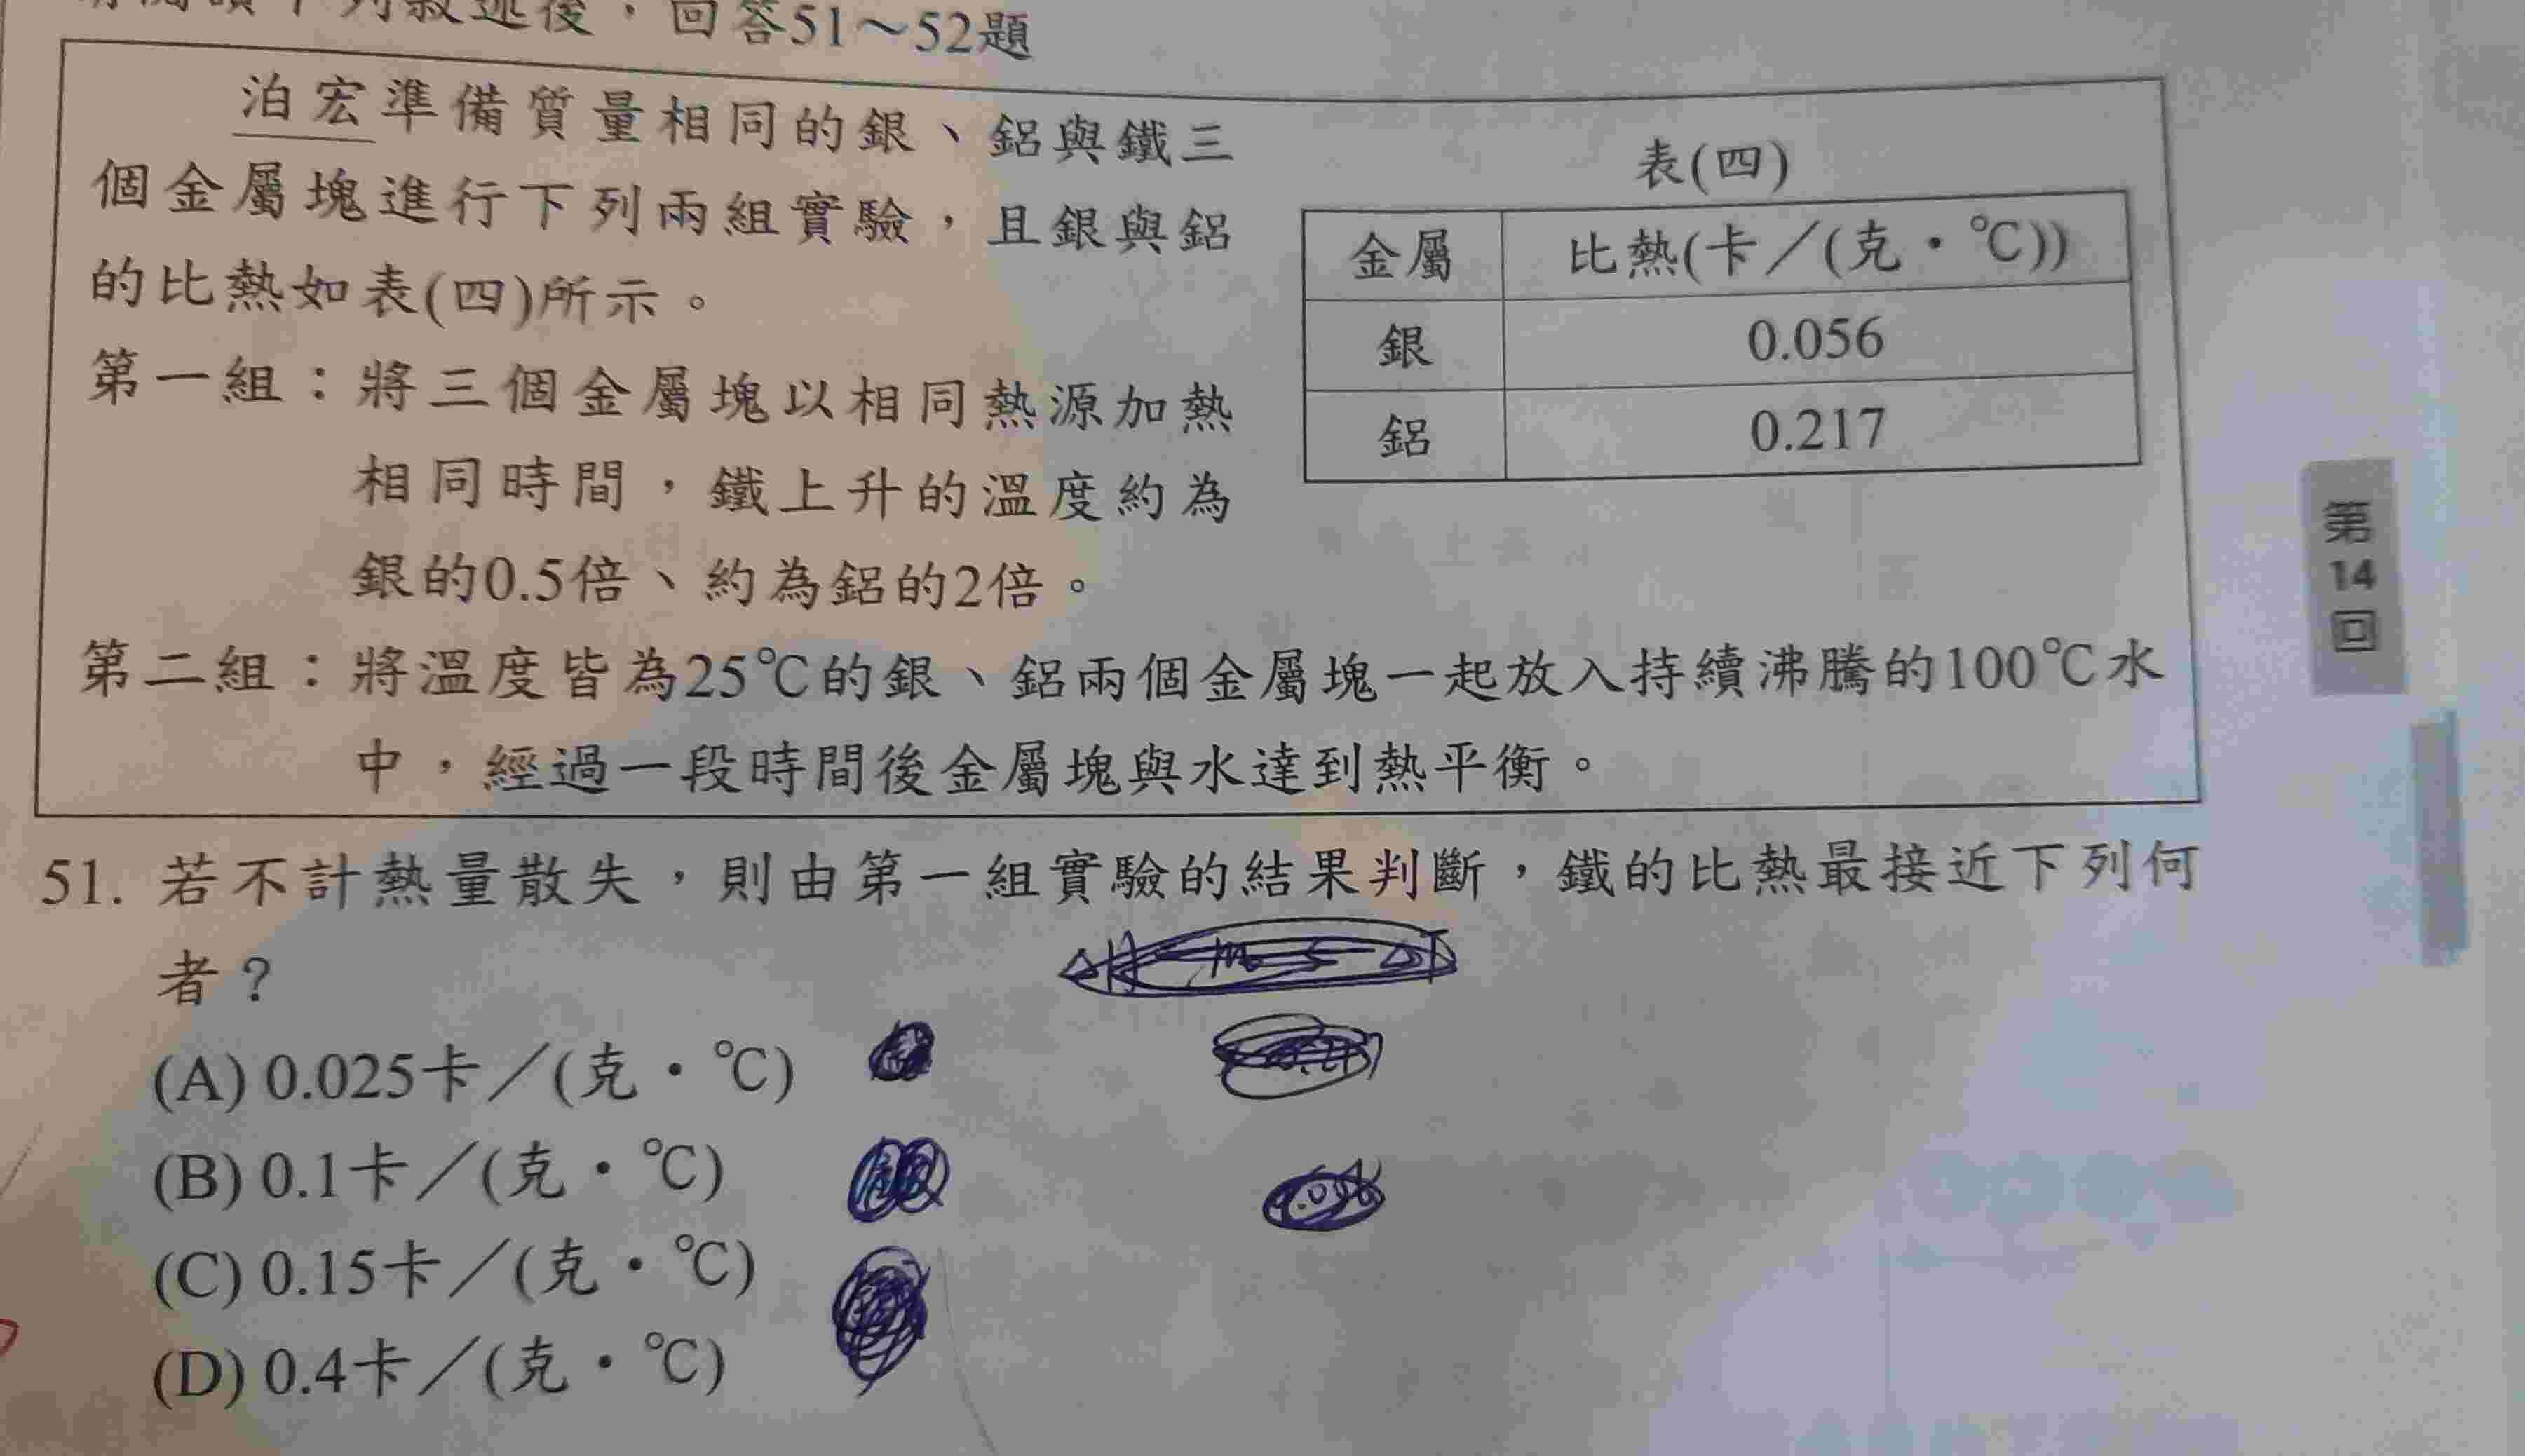 下列敘述後，回答51～52題
泊宏準備質量相同的銀、鋁與鐵三
個金屬塊進行下列兩組實驗，且銀與鋁
的比熱如表(四)所示。
第一組：將三個金屬塊以相同熱源加熱
相同時間，鐵上升的溫度約為
銀的0.5倍、約為鋁的2倍。
表(四)
金屬 比熱(卡／(克・℃))
銀 0.056
鋁 0.217
第二組：將溫度皆為25℃的銀、鋁兩個金屬塊一起放入持續沸騰的100℃水
中，經過一段時間後金屬塊與水達到熱平衡。
51. 若不計熱量散失，則由第一組實驗的結果判斷，鐵的比熱最接近下列何
者？
(A) 0.025卡／(克・℃)
(B) 0.1卡／(克・℃)
(C) 0.15卡／(克・℃)
(D) 0.4卡／(克・℃)
第
14
回